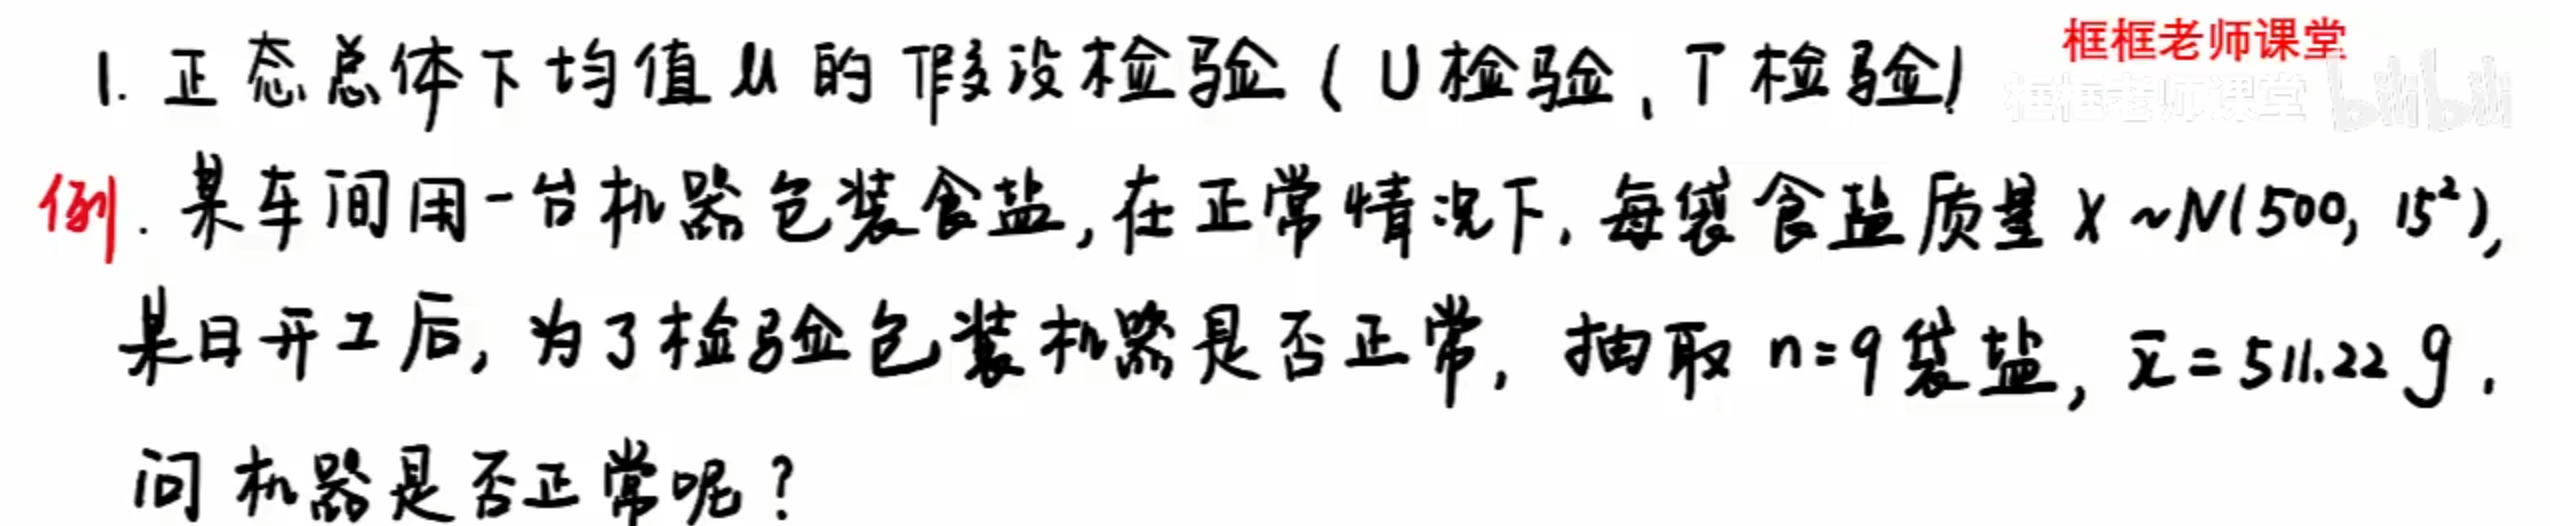 1. 正态总体下均值 μ 的假设检验 (U检验, T检验)
框框老师课堂
框框老师课堂 bilibili
例. 某车间用一台机器包装食盐, 在正常情况下, 每袋食盐质量 X ~ N(500, 15²),
某日开工后, 为了检验包装机器是否正常, 抽取 n=9袋盐, x̄ = 511.22 g.
问机器是否正常呢?